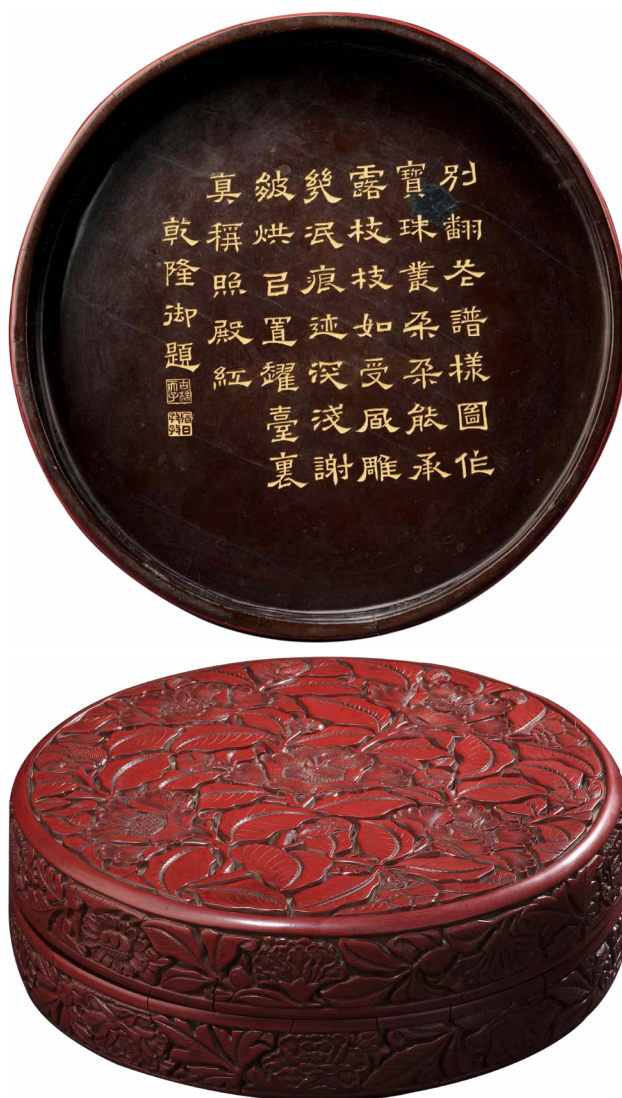 別翻花譜樣圖作
寶珠叢朵朵能承
露枝枝如受風雕
幾泯痕迹深淺謝
皴烘㠯置耀臺裏
真稱照殿紅
乾隆御題
古稀天子
猶日孜孜